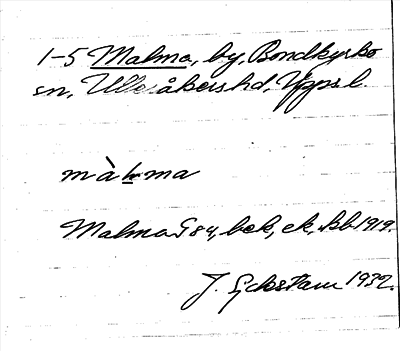 1-5 Malma, by, Bondkyrko
sn, Ulleråkers hd, Upps l.
màl̤ma
Malma G 84, bek, ek. kb 1919.
J. Eckstam 1932.